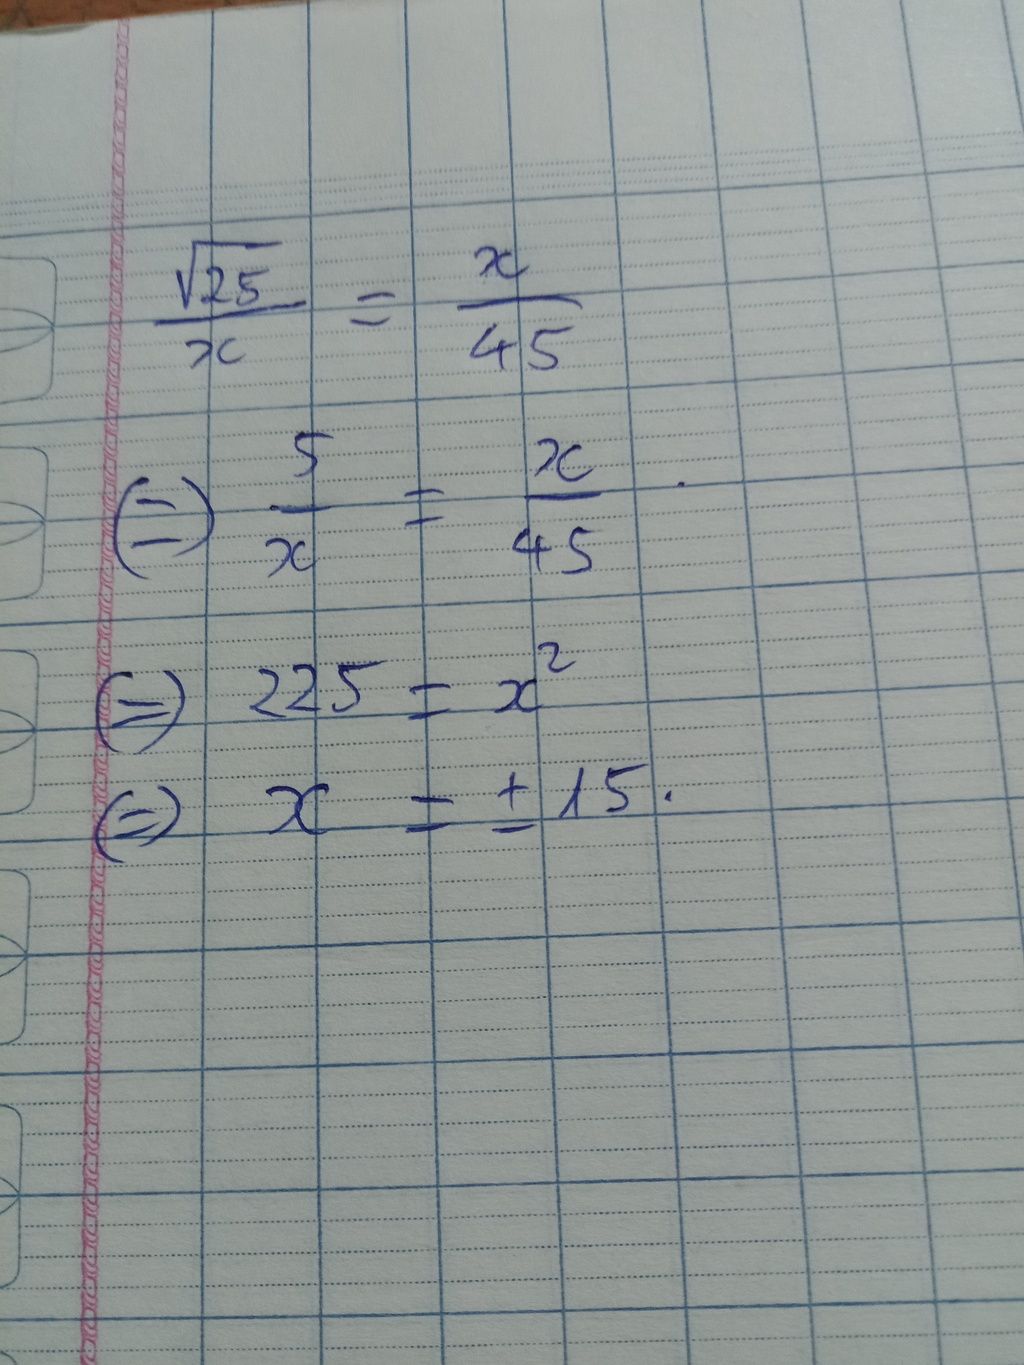 √25/x = x/45
(=) 5/x = x/45 .
(=) 225 = x²
(=) x = ± 15.